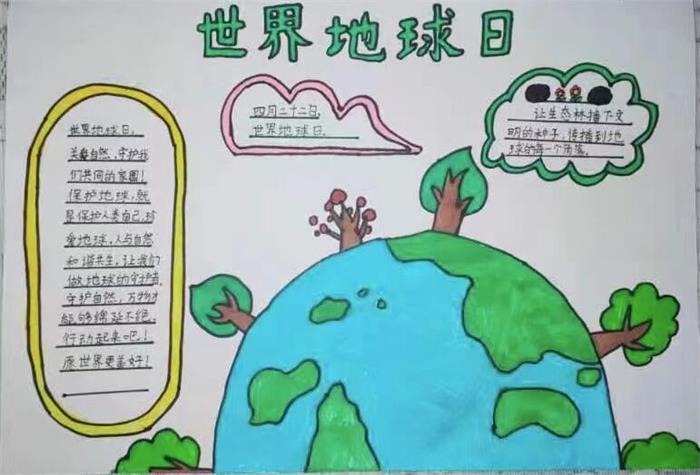 世界地球日
世界地球日,
关爱自然,守护我
们共同的家園!
保护地球,就
是保护人类自己,珍
爱地球,人与自然
和谐共生,让我们
做地球的守护者,
守护自然,万物才
能够绵延不绝,
行动起来吧!
原世界更美好!
四月二十二日,
世界地球日.
让生态林播下文
明的种子,传播到地
球的每一个角落.